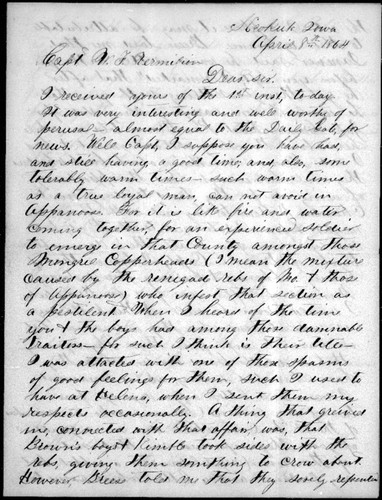 Keokuk Iowa
April 8th 1864
Capt W. F. Vermilion
Dear sir.
I received yours of the 1st inst, to day
It was very interesting and well worthy of
perusal – almost equal to the Daily Gate, for
news. Well Capt, I suppose you have had,
and still having a good time, and also, some
tolerably warm times – such warm times
as a true loyal man, can not avoid in
Appanoose. For it is like fire and water
coming together, for an experienced soldier
to emerge in that County amongst those
Mongrel Copperheads (I mean the mixture
caused by the renegade rebs of Mo. & those
of Appanoose) who infest that section as
a pestilent. When I heard of the time
you & the boys had among those damnable
Traitors – for such I think is their title –
I was attacked with one of those spasms
of good feelings for them, such I used to
have at Helena, when I sent them my
respects occasionally. A thing that grieved
me, connected with that affair was, that
Brown's boys & Kimble took sides with the
rebs, giving them something to crow about.
However told me that they sorely repented